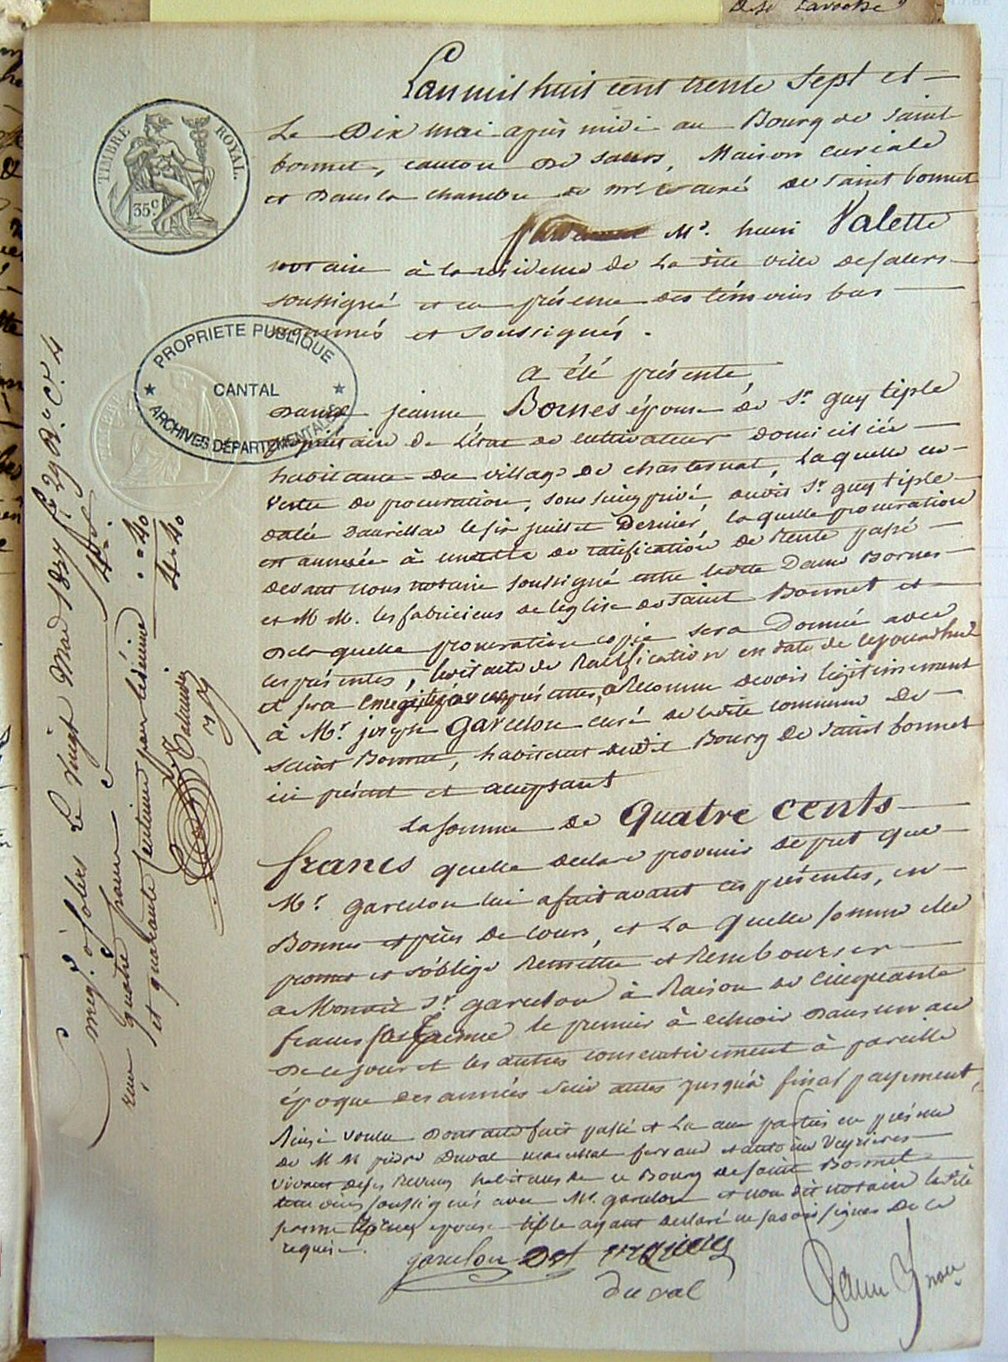 de st Laroche
TIMBRE ROYAL
35c
L'an mil huit cent trente sept et
Le Dix mai après midi au Bourg de Saint
bonnet, canton de Salers, Maison curiale
et Dans la chambre de mr le curé de Saint bonnet
Mr. henri Valette
notaire à la résidence de La dite ville de Salers
soussigné et en présence des témoins bas
nommés et soussignés.
a été présente,
PROPRIETE PUBLIQUE
CANTAL
ARCHIVES DÉPARTEMENTALES
Dame jeanne Bornes épouse de Sr guy tiple
de l'état de cultivateur domiciliée
habitante du village de chasternat, Laquelle en
vertu de procuration, sous seing privé, dudit Sr guy tiple
datée D'aurillac le six juillet Dernier, laquelle procuration
est annexée à un acte de ratification de vente passé
devant nous notaire soussigné entre ladite Dame Bornes
et M M. les fabriciens de l'église de Saint Bonnet et
De laquelle procuration copie sera Donnée avec
ces présentes, ledit acte de Ratification en date de cejourdhui
et sera enregistré avec ces présentes, a Reconnu devoir légitimement
à Mr. joseph Garcelon curé de ladite commune de
Saint Bonnet, habitant dudit Bourg de Saint bonnet
ici présent et acceptant
La somme de Quatre cents
francs quelle declare provenir de pret que
Mr. garcelon lui a fait avant ces présentes, en
Bonnes espèces de cours, et La quelle somme elle
promet et s'oblige Remettre et Rembourser
a Mondit Sr. garcelon à Raison de cinquante
francs par terme le premier à echoir Dans un an
De ce jour et les autres consecutivement à pareille
époque des années suivantes jusqu'à final payement,
Ainsi voulu Dont acte fait passé et Lu aux parties en présence
de M M pierre Duval marechal ferrand et antoine Veyrieres
vivant de ses Revenus habitans de ce Bourg de Saint Bonnet
témoins soussignés avec Mr. garcelon et nous dit notaire la dite
épouse tiple ayant declaré ne savoir signer De ce
requise.
garcelon
duval
Enregé. à Salers Le vingt Mai 1837
reçu quatre francs
et quarante centimes pour le décime
4 "
" 40
4 - 40